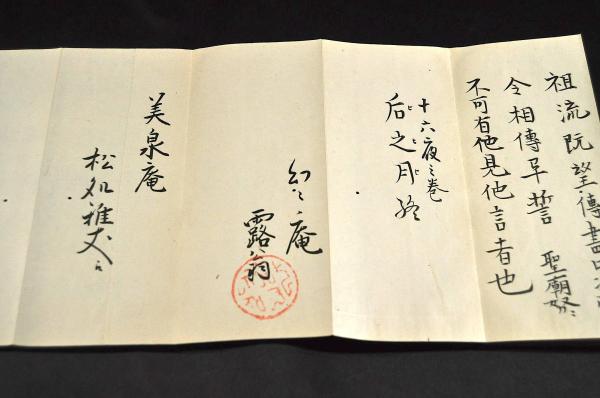 祖流既望傳書
令相傳早誓 聖廟
不可有他見他言者也
十六夜之巻
后之月
幻々庵
露翁
美泉庵
松処雅丈